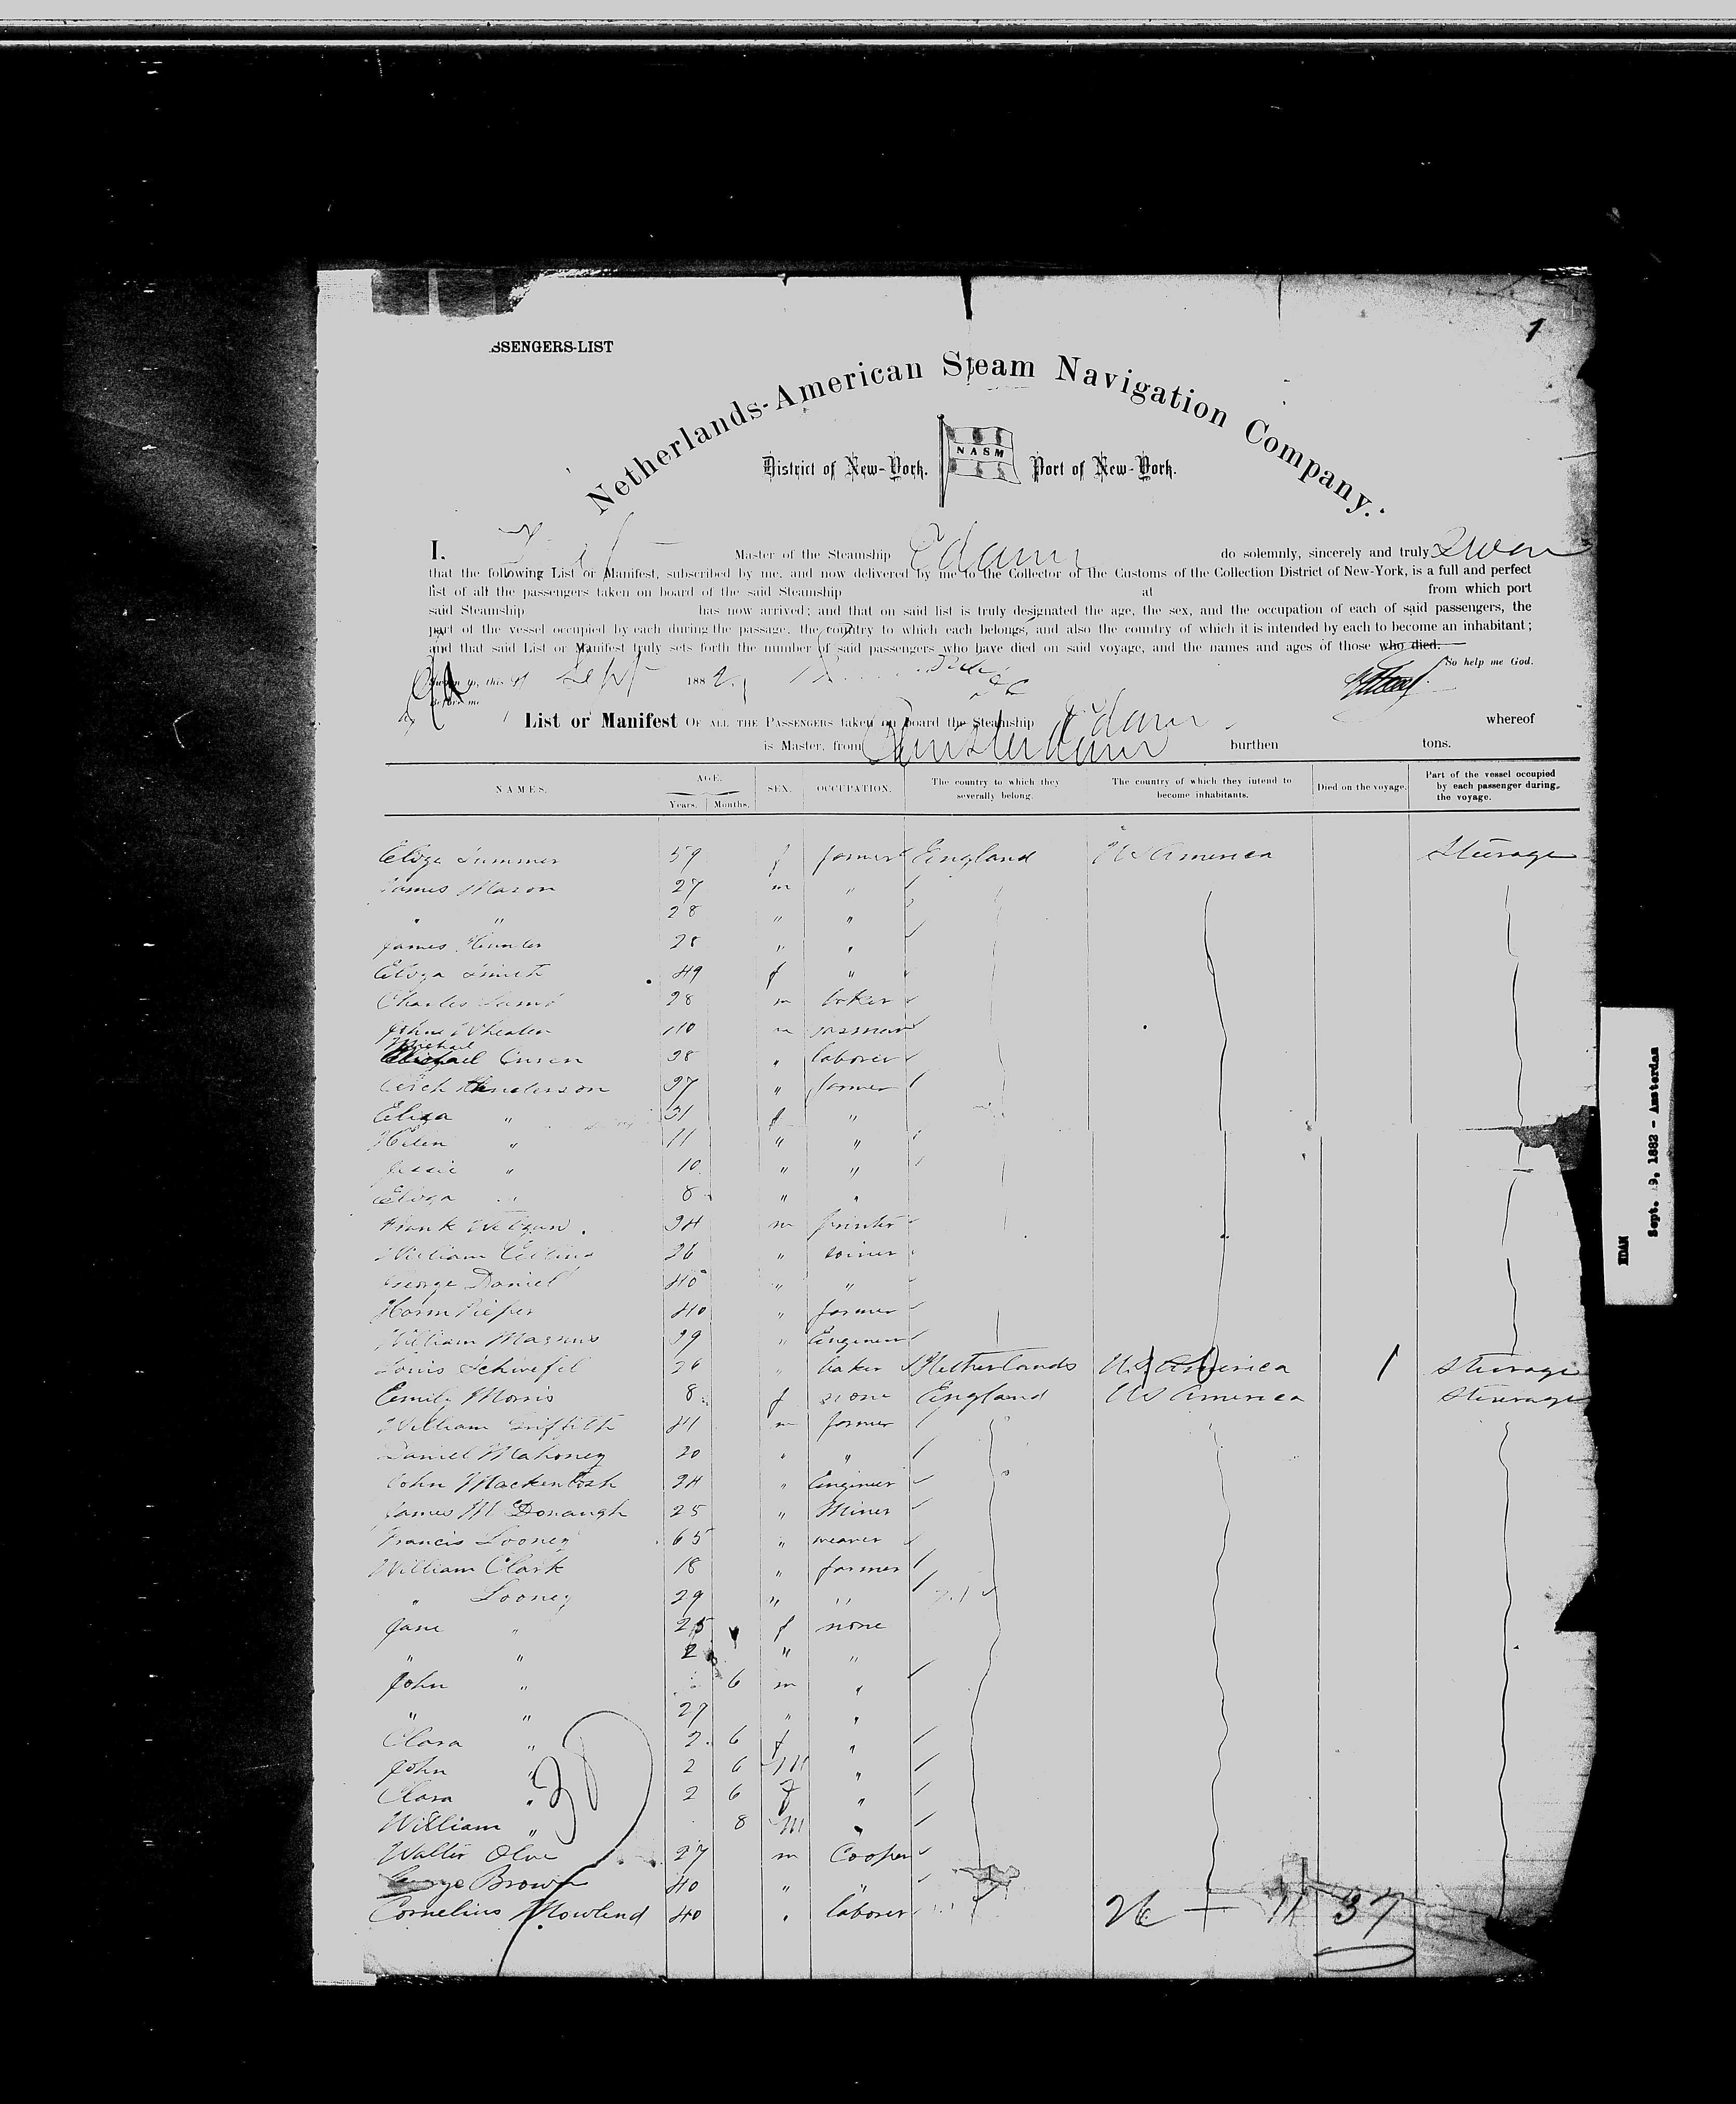 1
SSENGERS-LIST
Netherlands-American Steam Navigation Company.
District of New-York. NASM Port of New-York.
I, Master of the Steamship Edam do solemnly, sincerely and truly swear
that the following List or Manifest, subscribed by me, and now delivered by me to the Collector of the Customs of the Collection District of New-York, is a full and perfect
list of all the passengers taken on board of the said Steamship at from which port
said Steamship has now arrived; and that on said list is truly designated the age, the sex, and the occupation of each of said passengers, the
part of the vessel occupied by each during the passage, the country to which each belongs, and also the country of which it is intended by each to become an inhabitant;
and that said List or Manifest truly sets forth the number of said passengers who have died on said voyage, and the names and ages of those who died.
So help me God.
Sworn to, this Sept 1882
Before me
List or Manifest OF ALL THE PASSENGERS taken on board the Steamship Edam whereof
is Master, from Amsterdam burthen tons.
NAMES. AGE. Years. Months. SEX. OCCUPATION. The country to which they severally belong. The country of which they intend to become inhabitants. Died on the voyage. Part of the vessel occupied by each passenger during the voyage.
Summer 59 f farmer England US America Steerage
James Mason 27 m "
" " 28 " "
James Hunter 28 " "
Smith 49 f "
Charles 28 m baker
John Wheaten 40 m
Michael
28 " laborer
Henderson 37 " farmer
Eliza " 31 f "
Helen " 11 " "
Jessie " 10 " "
" 8 " "
Frank 24 m printer
William Collins 26 "
George Daniel 40 " "
Harm Pieper 40 " farmer
William Magnus 39 " Engineer
Louis Schwefel 26 " baker Netherlands US America 1 Steerage
Emily Morris 8 f none England US America Steerage
William Griffith 41 m farmer
Daniel Mahoney 20 " "
John Mackentosh 24 " Engineer
James Mc Donaugh 25 " Miner
Francis Looney 65 " weaver
William Clark 18 " farmer
" Looney 29 " "
Jane " 25 f none
" " 2 " "
John " 6 m "
" " 27 " "
Clara " 2 6 f "
John " 2 6 M "
Clara " 2 6 f "
William " 8 M "
Walter Olve 27 m Cooper
George Brown 40 " "
Cornelius Mowlend 40 " laborer
26 11 37
EDAM
Sept. 19, 1882 - Amsterdam